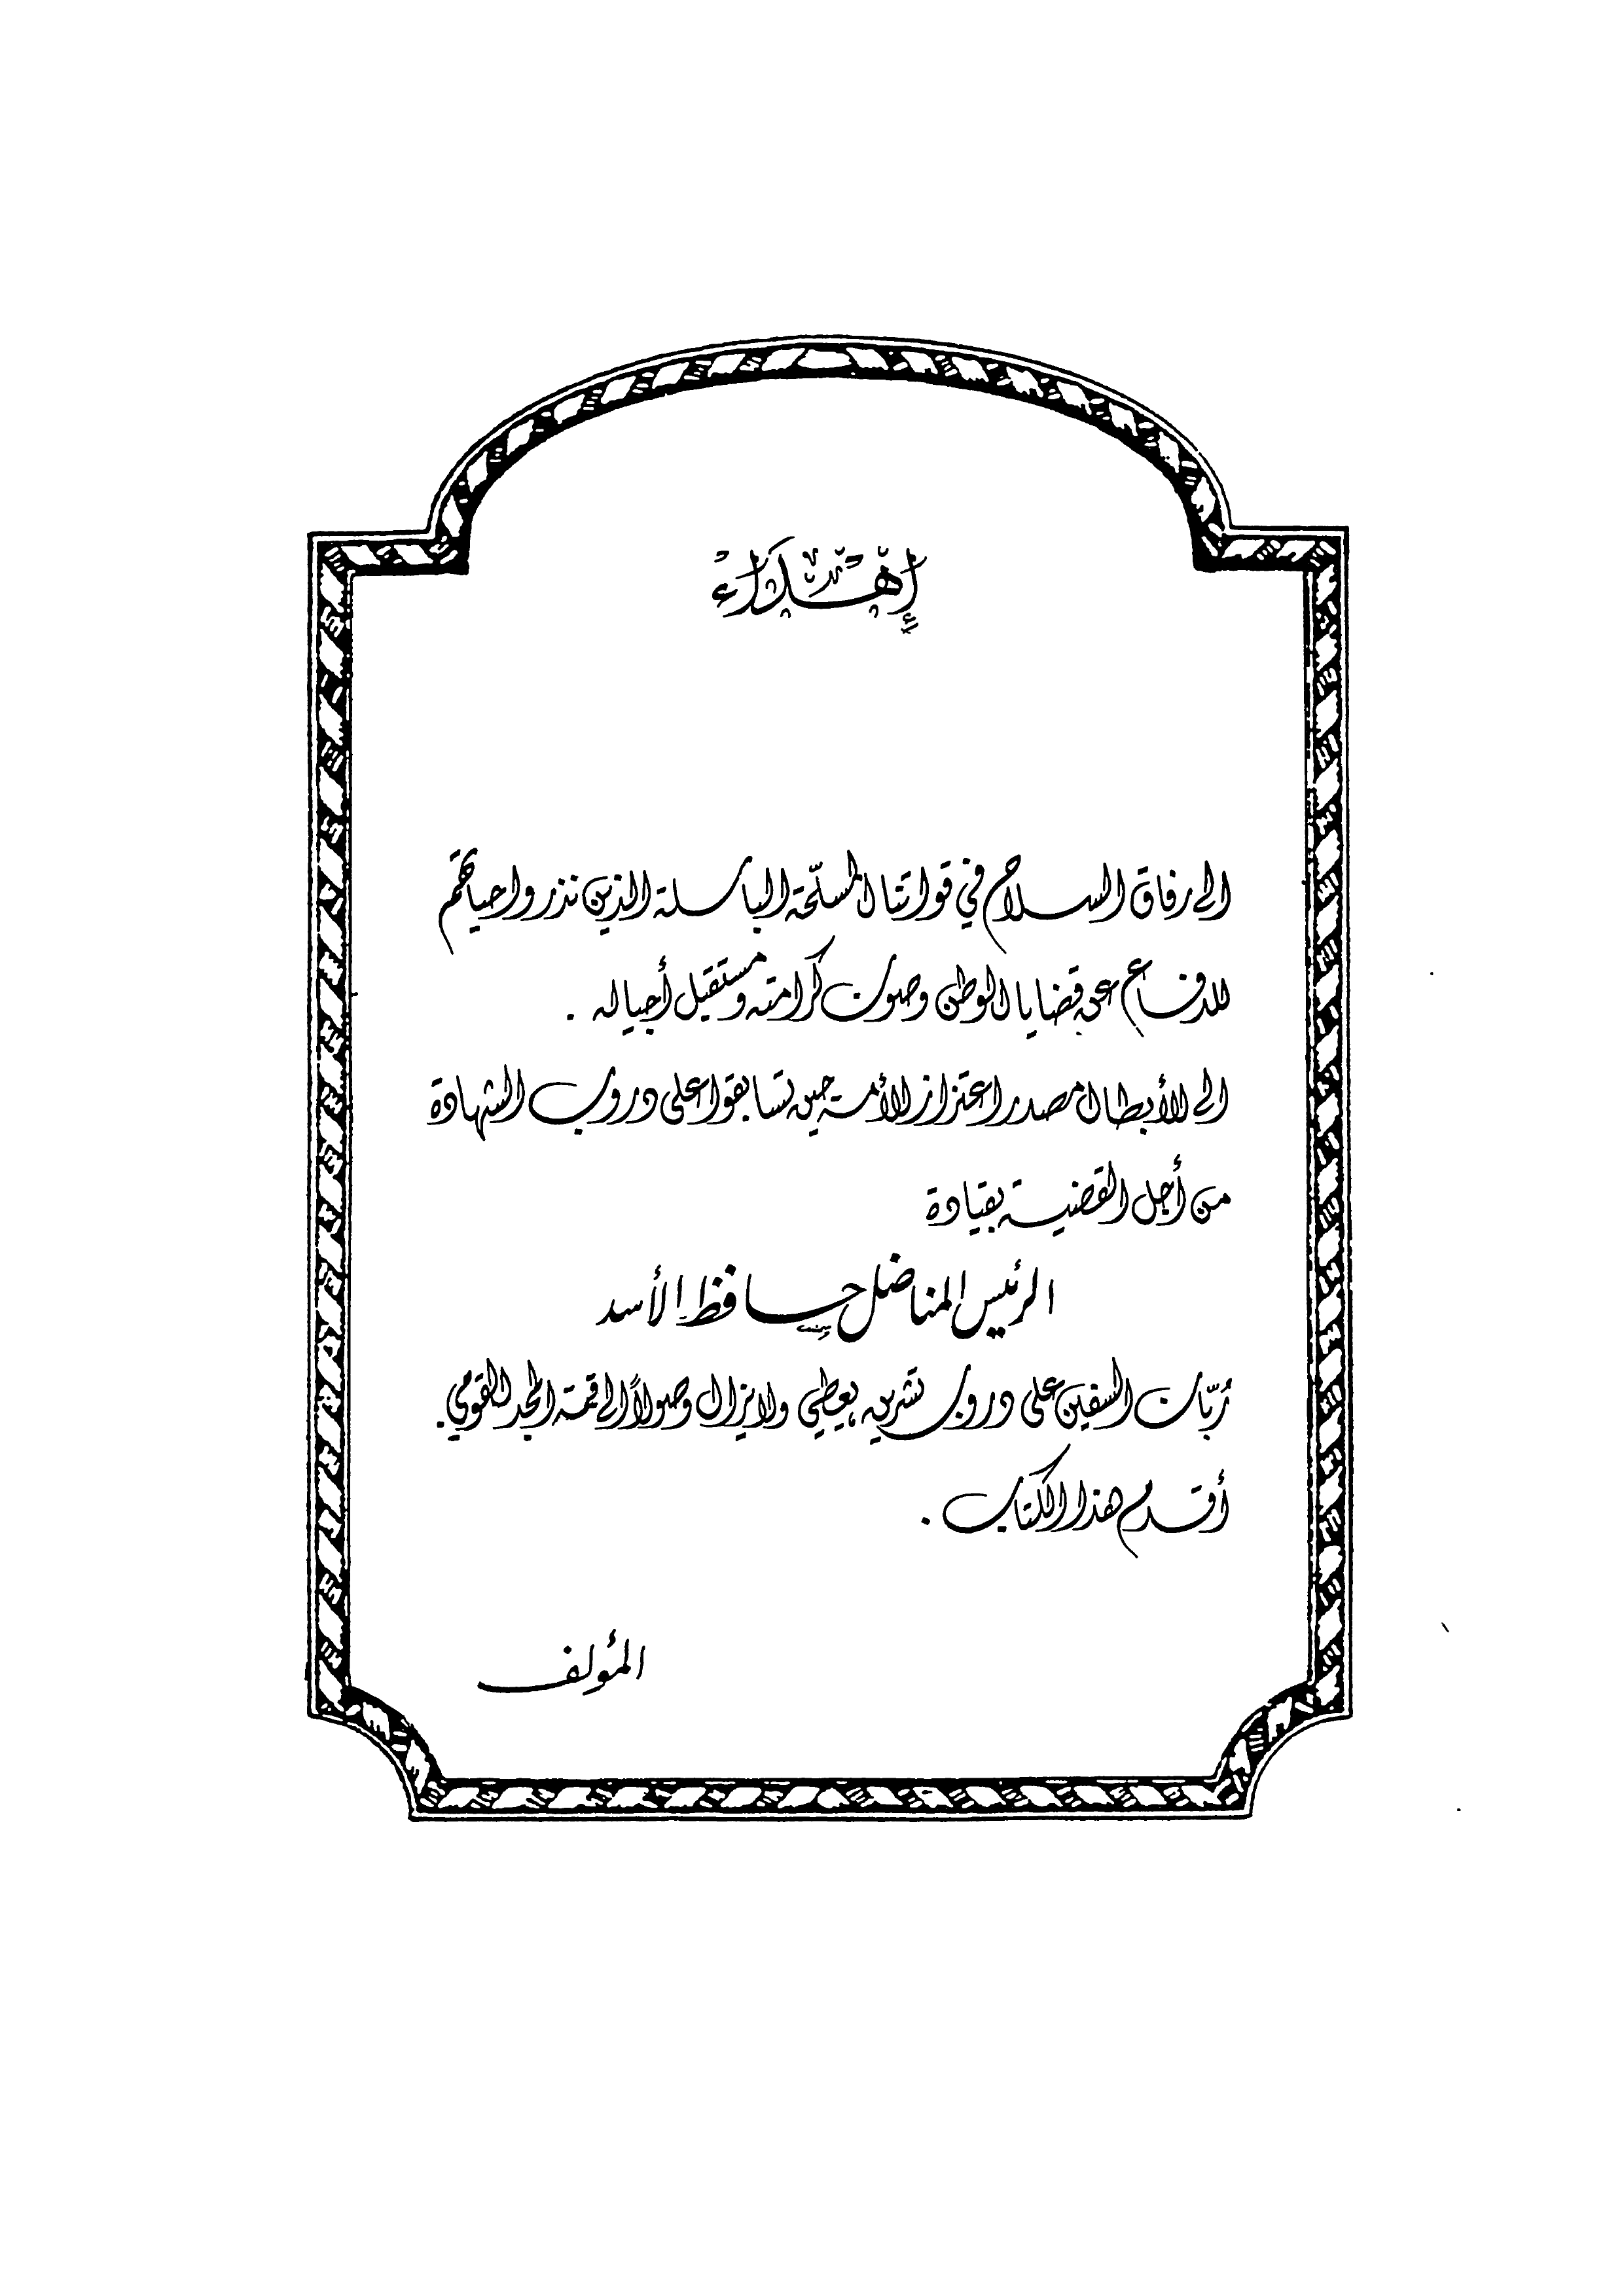 إهداء
الى رفاق السلاح في قواتنا المسلّحة الباسلة الذين نذروا حياتهم
للدفاع عن قضايا الوطن وصون كرامته ومستقبل أجياله .
الى الأبطال مصدر اعتزاز الأمة حين تسابقوا على دروب الشهادة
من أجل القضية بقيادة
الرئيس المناضل حافظ الأسد
رُبّان السفين على دروب تشرين يعطي ولا يزال وصولاً الى قمة المجد القومي .
أقدم هذا الكتاب .
المؤلف